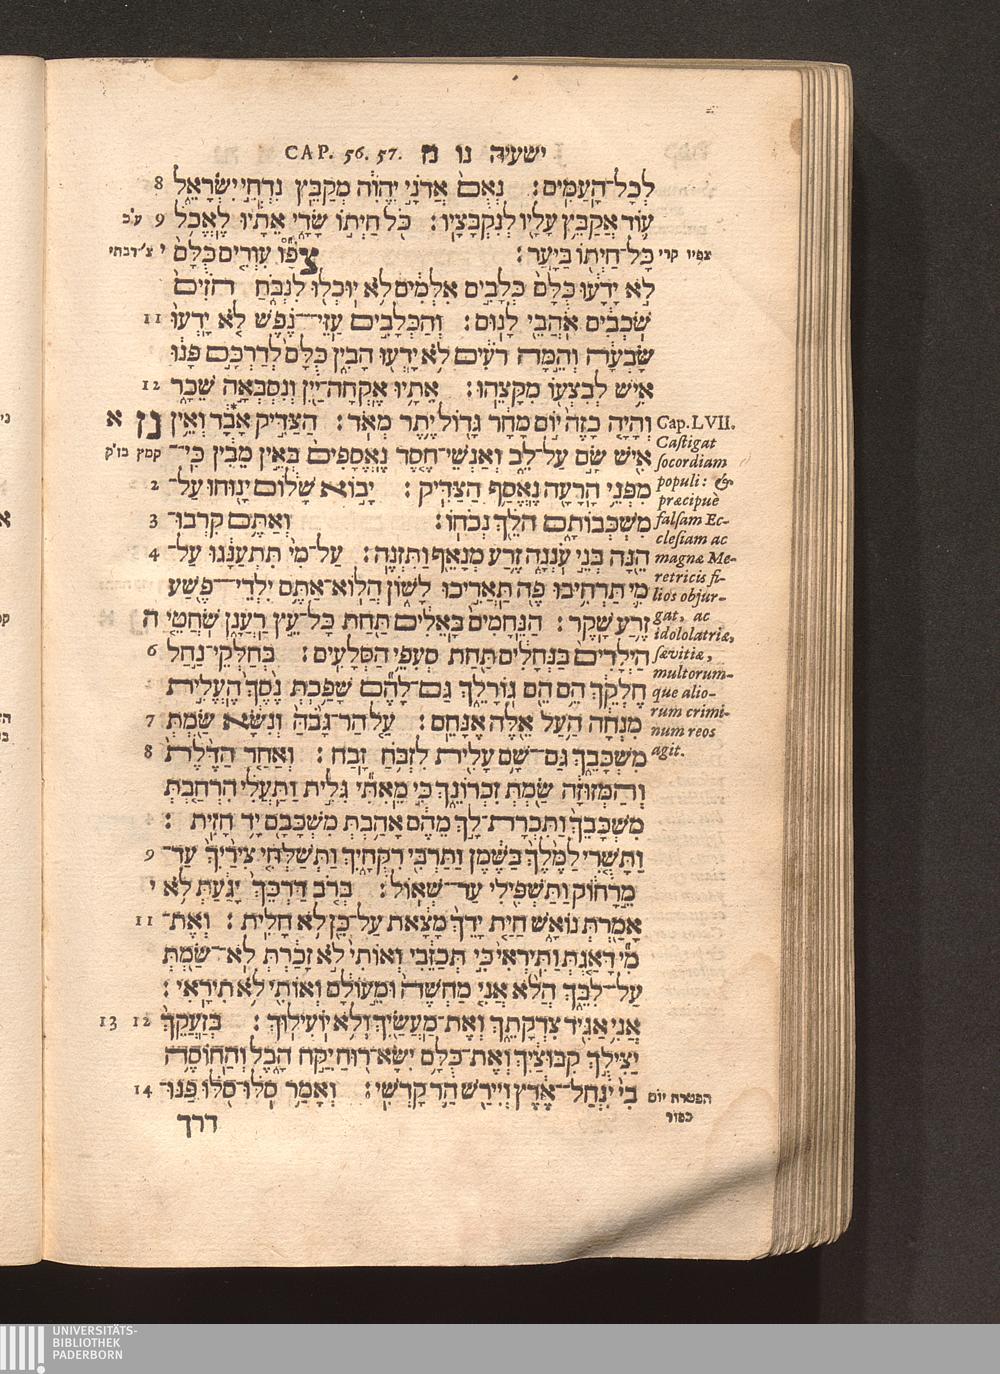 ישעיה נו מ CAP. 56. 57.
לְכָל־הָעַמִּים׃ נְאֻם אֲדֹנָי יְהֹוִה מְקַבֵּץ נִדְחֵי יִשְׂרָאֵל 8
עוֹד אֲקַבֵּץ עָלָיו לְנִקְבָּצָיו׃ כֹּל חַיְתוֹ שָׂדָי אֵתָיוּ לֶאֱכֹל 9
צפיו קרי כָּל־חַיְתוֹ בַּיָּעַר׃ צֹפָו עִוְרִים כֻּלָּם י צ׳ רבתי
לֹא יָדָעוּ כֻּלָּם כְּלָבִים אִלְּמִים לֹא יוּכְלוּ לִנְבֹּחַ הֹזִים
שֹׁכְבִים אֹהֲבֵי לָנוּם׃ וְהַכְּלָבִים עַזֵּי־נֶפֶשׁ לֹא יָדְעוּ 11
שָׂבְעָה וְהֵמָּה רֹעִים לֹא יָדְעוּ הָבִין כֻּלָּם לְדַרְכָּם פָּנוּ
אִישׁ לְבִצְעוֹ מִקָּצֵהוּ׃ אֵתָיוּ אֶקְחָה־יַיִן וְנִסְבְּאָה שֵׁכָר 12
וְהָיָה כָזֶה יוֹם מָחָר גָּדוֹל יֶתֶר מְאֹד׃ הַצַּדִּיק אָבָד וְאֵין נז א
אִישׁ שָׂם עַל־לֵב וְאַנְשֵׁי־חֶסֶד נֶאֱסָפִים בְּאֵין מֵבִין כִּי־ קמץ בז״ק
מִפְּנֵי הָרָעָה נֶאֱסַף הַצַּדִּיק׃ יָבוֹא שָׁלוֹם יָנוּחוּ עַל־ 2
מִשְׁכְּבוֹתָם הֹלֵךְ נְכֹחוֹ׃ וְאַתֶּם קִרְבוּ־ 3
הֵנָּה בְּנֵי עֹנְנָה זֶרַע מְנָאֵף וַתִּזְנֶה׃ עַל־מִי תִּתְעַנָּגוּ עַל־ 4
מִי תַּרְחִיבוּ פֶה תַּאֲרִיכוּ לָשׁוֹן הֲלוֹא־אַתֶּם יִלְדֵי־פֶשַׁע
זֶרַע שָׁקֶר׃ הַנֵּחָמִים בָּאֵלִים תַּחַת כָּל־עֵץ רַעֲנָן שֹׁחֲטֵי ה
הַיְלָדִים בַּנְּחָלִים תַּחַת סְעִפֵי הַסְּלָעִים׃ בְּחַלְּקֵי־נַחַל 6
חֶלְקֵךְ הֵם הֵם גּוֹרָלֵךְ גַּם־לָהֶם שָׁפַכְתְּ נֶסֶךְ הֶעֱלִית
מִנְחָה הַעַל אֵלֶּה אֶנָּחֵם׃ עַל הַר־גָּבֹהַּ וְנִשָּׂא שַׂמְתְּ 7
מִשְׁכָּבֵךְ גַּם־שָׁם עָלִית לִזְבֹּחַ זָבַח׃ וְאַחַר הַדֶּלֶת 8
וְהַמְּזוּזָה שַׂמְתְּ זִכְרוֹנֵךְ כִּי מֵאִתִּי גִּלִּית וַתַּעֲלִי הִרְחַבְתְּ
מִשְׁכָּבֵךְ וַתִּכְרָת־לָךְ מֵהֶם אָהַבְתְּ מִשְׁכָּבָם יָד חָזִית׃
וַתָּשֻׁרִי לַמֶּלֶךְ בַּשֶּׁמֶן וַתַּרְבִּי רִקֻּחָיִךְ וַתְּשַׁלְּחִי צִירַיִךְ עַד־ 9
מֵרָחוֹק וַתַּשְׁפִּילִי עַד־שְׁאוֹל׃ בְּרֹב דַּרְכֵּךְ יָגַעַתְּ לֹא י
אָמַרְתְּ נוֹאָשׁ חַיַּת יָדֵךְ מָצָאת עַל־כֵּן לֹא חָלִית׃ וְאֶת־ 11
מִי דָּאַגְתְּ וַתִּירְאִי כִּי תְכַזֵּבִי וְאוֹתִי לֹא זָכַרְתְּ לֹא־שַׂמְתְּ
עַל־לִבֵּךְ הֲלֹא אֲנִי מַחְשֶׁה וּמֵעוֹלָם וְאוֹתִי לֹא תִירָאִי׃
אֲנִי אַגִּיד צִדְקָתֵךְ וְאֶת־מַעֲשַׂיִךְ וְלֹא יוֹעִילוּךְ׃ בְּזַעֲקֵךְ 12 13
יַצִּילֻךְ קִבּוּצַיִךְ וְאֶת־כֻּלָּם יִשָּׂא־רוּחַ יִקַּח הָבֶל וְהַחוֹסֶה
בִי יִנְחַל־אֶרֶץ וְיִירַשׁ הַר קָדְשִׁי׃ וְאָמַר סֹלּוּ־סֹלּוּ פַּנּוּ־ 14
דרך
Cap. LVII.
Castigat
socordiam
populi: &
præcipuè
falsam Ec-
clesiam ac
magnæ Me-
retricis fi-
lios objur-
gat, ac
idololatriæ,
sævitiæ,
multorum-
que alio-
rum crimi-
num reos
agit.
הפטרת יום
כפור
UNIVERSITÄTS-
BIBLIOTHEK
PADERBORN